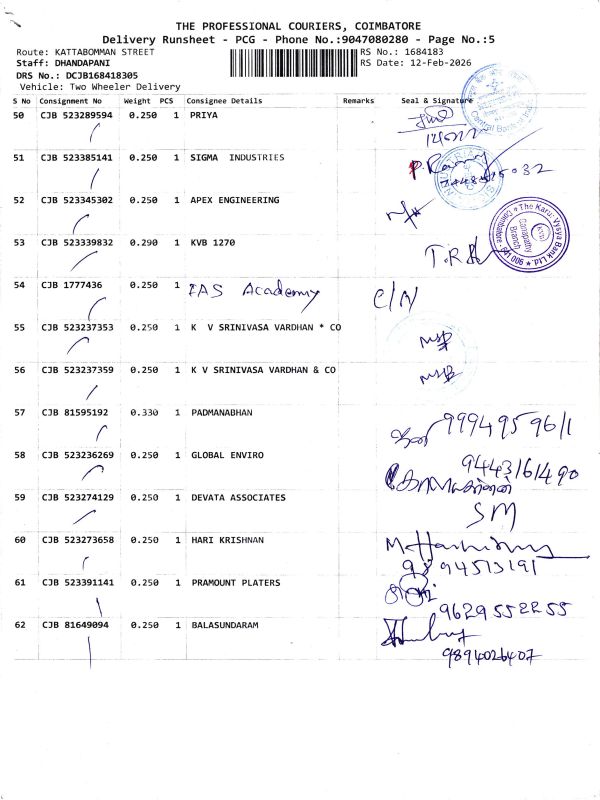 THE PROFESSIONAL COURIERS, COIMBATORE
Delivery Runsheet - PCG - Phone No.:9047080280 - Page No.:5
Route: KATTABOMMAN STREET RS No.: 1684183
Staff: DHANDAPANI RS Date: 12-Feb-2026
DRS No.: DCJB168418305
Vehicle: Two Wheeler Delivery
S No Consignment No Weight PCS Consignee Details Remarks Seal & Signature
50 CJB 523289594 0.250 1 PRIYA
51 CJB 523385141 0.250 1 SIGMA INDUSTRIES
52 CJB 523345302 0.250 1 APEX ENGINEERING
53 CJB 523339832 0.290 1 KVB 1270
The Karur Vysya Bank Ltd. Ganapathy Branch Coimbatore - 641 006
54 CJB 1777436 0.250 1 IAS Academy C/N
55 CJB 523237353 0.250 1 K V SRINIVASA VARDHAN * CO
56 CJB 523237359 0.250 1 K V SRINIVASA VARDHAN & CO
57 CJB 81595192 0.330 1 PADMANABHAN
58 CJB 523236269 0.250 1 GLOBAL ENVIRO 9443161490
59 CJB 523274129 0.250 1 DEVATA ASSOCIATES SM
60 CJB 523273658 0.250 1 HARI KRISHNAN
9894513191
61 CJB 523391141 0.250 1 PRAMOUNT PLATERS
9629552255
62 CJB 81649094 0.250 1 BALASUNDARAM
9894026407